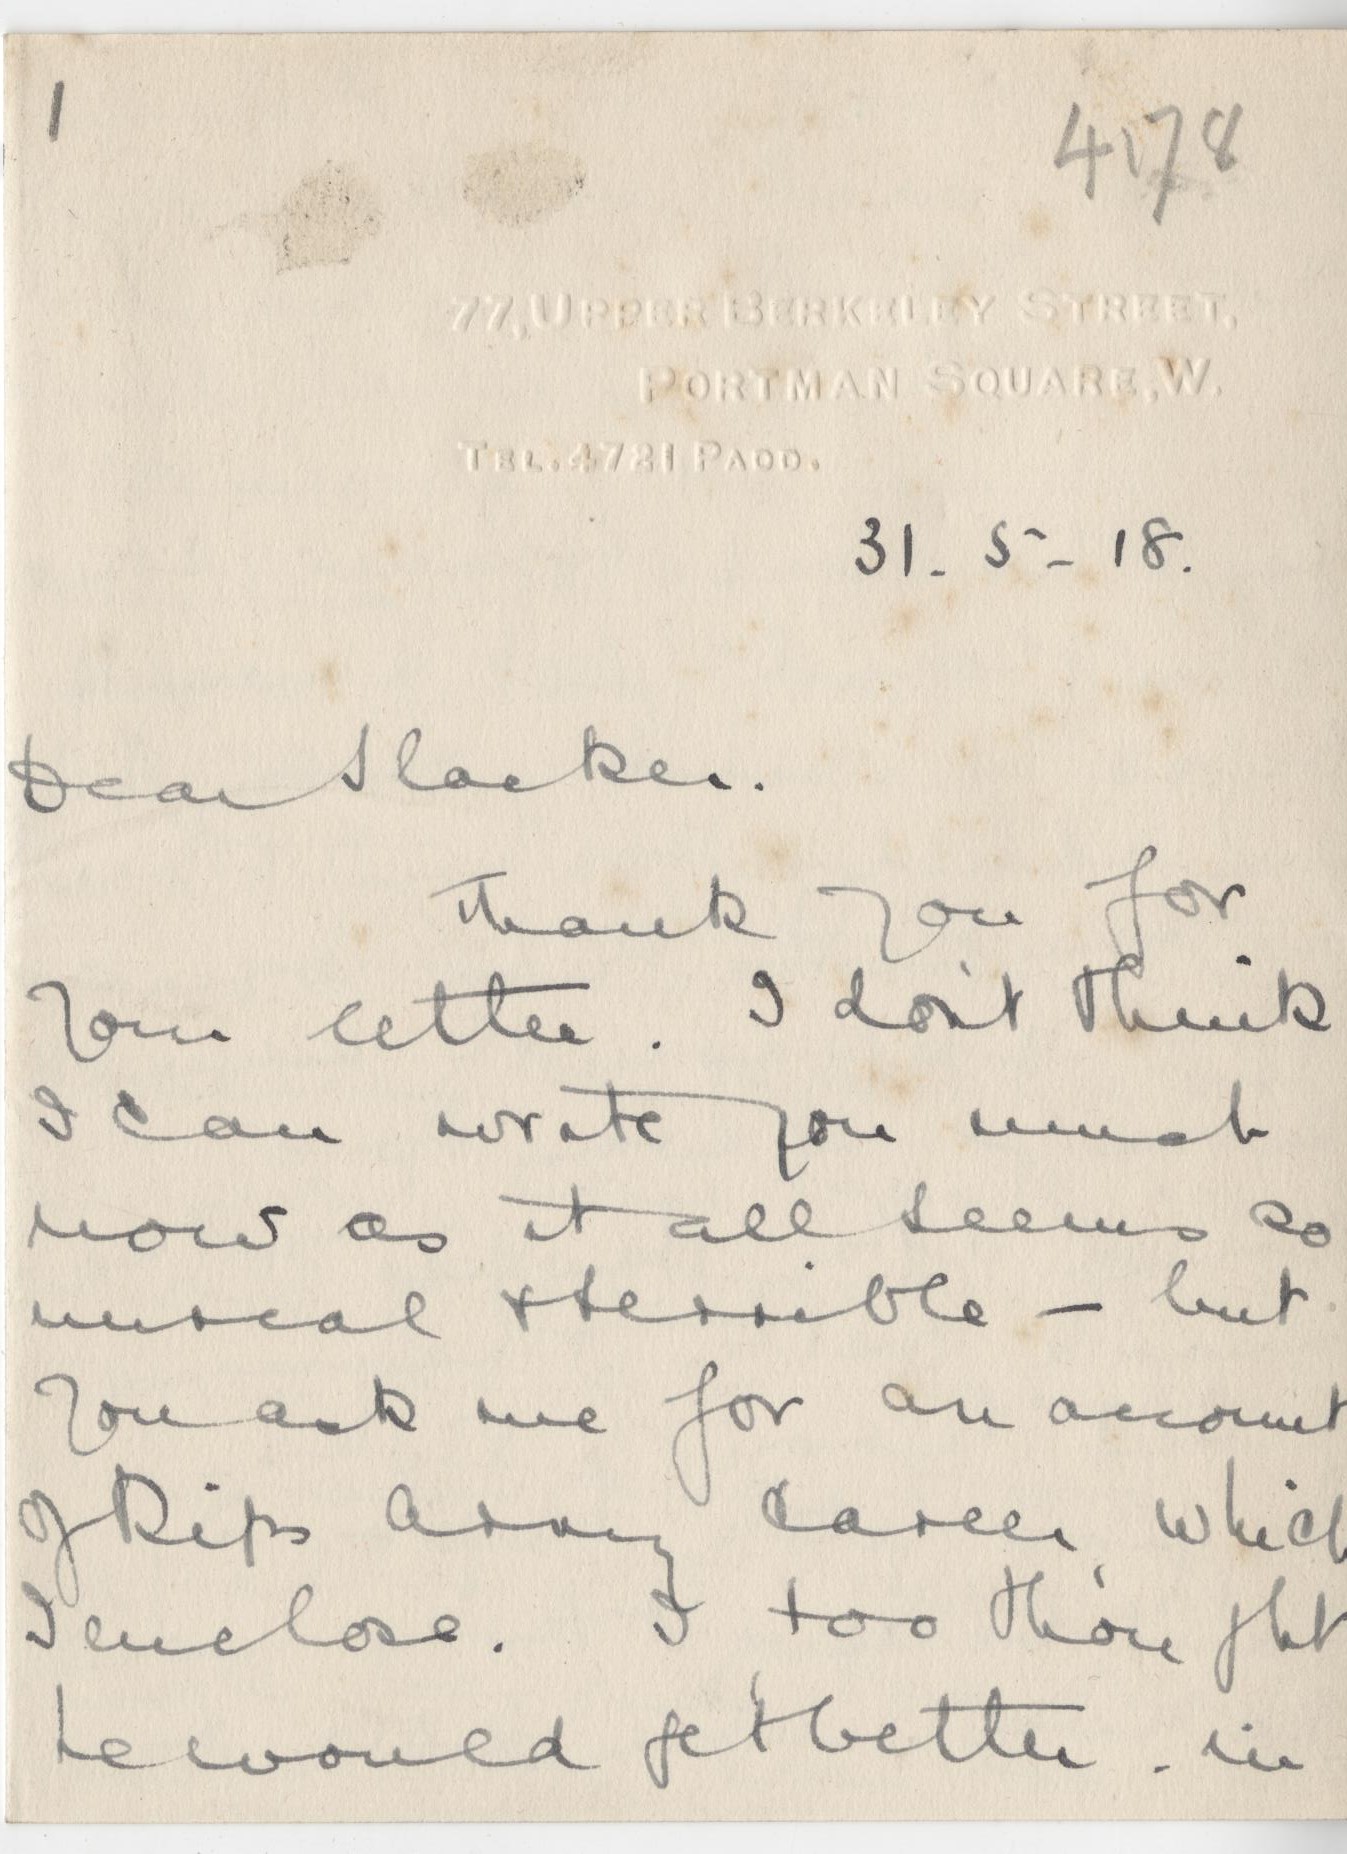 1
4178
77, UPPER BERKELEY STREET,
PORTMAN SQUARE, W.
TEL. 4721 PADD.
31 - 5 - 18.
Dear Slacker.
Thank you for
your letter. I don't think
I can write you much
now as it all seems so
unreal & terrible — but
you ask me for an account
of Kip's Army career, which
I enclose. I too thought
he would get better. in